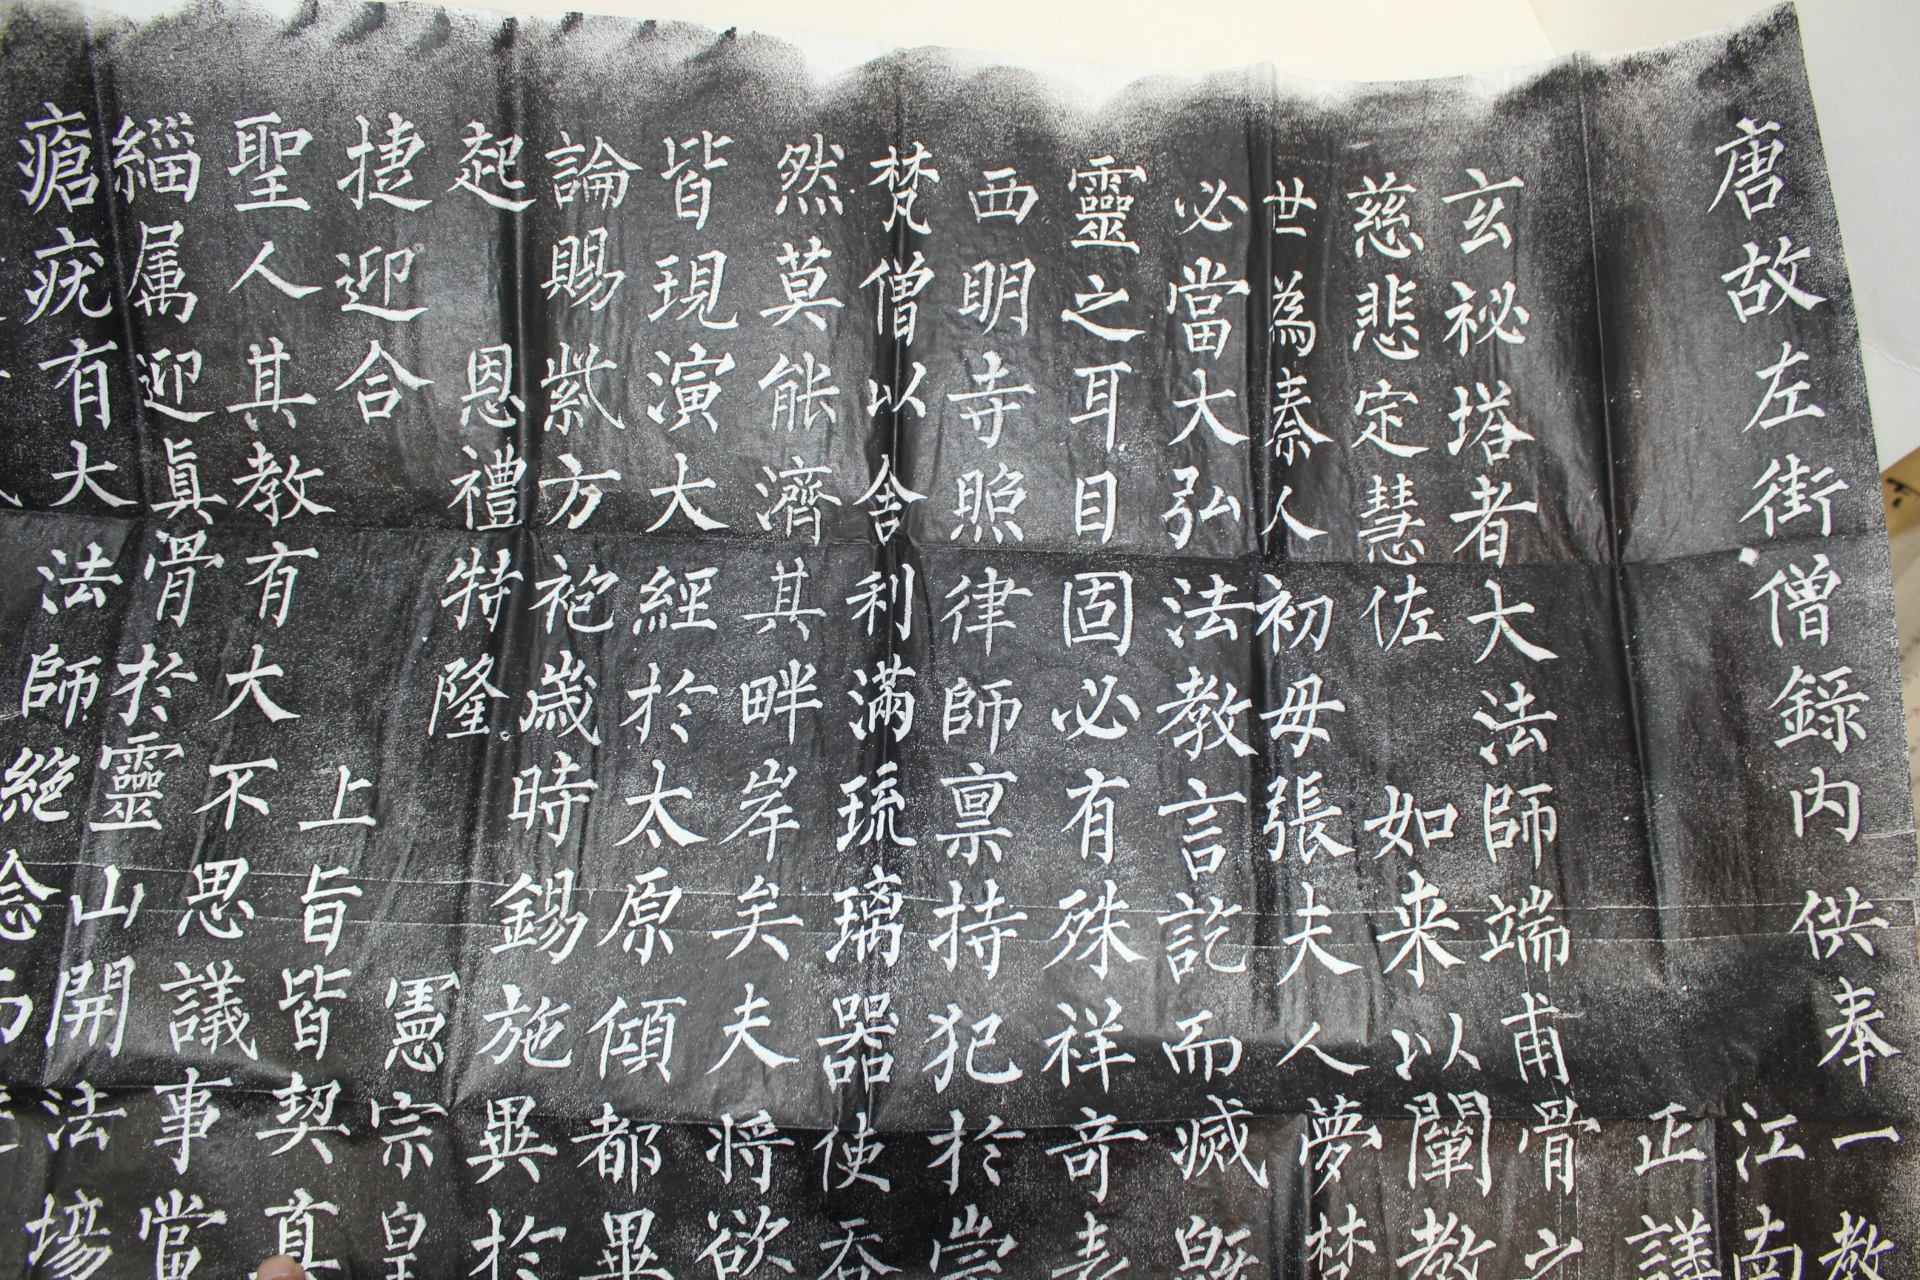 唐故左街僧錄内供奉一教
江南
正議
玄祕塔者大法師端甫骨之
慈悲定慧佐 如来以闡教
世為秦人初母張夫人夢梵
必當大弘法教言訖而滅既
靈之耳目固必有殊祥奇表
西明寺照律師禀持犯於崇
梵僧以舍利滿琉璃器使吞
然莫能濟其畔岸矣夫将欲
皆現演大經於太原傾都畢
論賜紫方袍歳時錫施異於
起 恩禮特隆
憲宗皇
捷迎合 上旨皆契真
聖人其教有大不思議事當
緇属迎眞骨於靈山開法場
瘡疣有大 法師絶念而